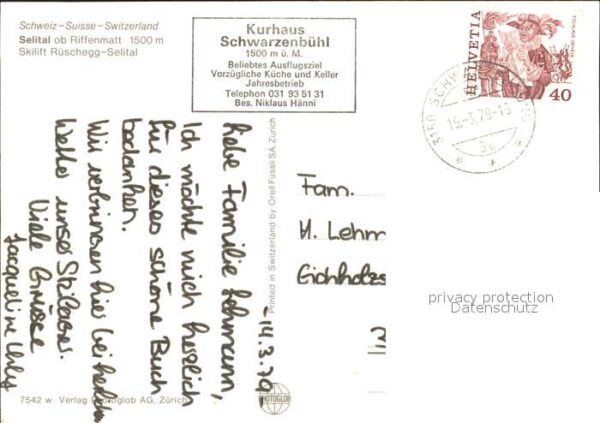 Schweiz-Suisse-Switzerland
Selital ob Riffenmatt 1500 m
Skilift Rüschegg-Selital
Kurhaus
Schwarzenbühl
1500 m ü. M.
Beliebtes Ausflugsziel
Vorzügliche Küche und Keller
Jahresbetrieb
Telephon 031 93 51 31
Bes. Niklaus Hänni
HELVETIA
40
3150 SCHW
15.-3.79-15
-14.3.79
Liebe Familie Lehmann,
Ich möchte mich herzlich
für dieses schöne Buch
bedanken.
Wir verbringen hier bei
unser Skilager.
Viele Grüsse
Jacqueline
Printed in Switzerland by Orell Füssli SA, Zürich
Fam.
H. Lehm
Eichholzs
privacy protection
Datenschutz
7542 w Verlag Photoglob AG, Zürich
PHOTOGLOB